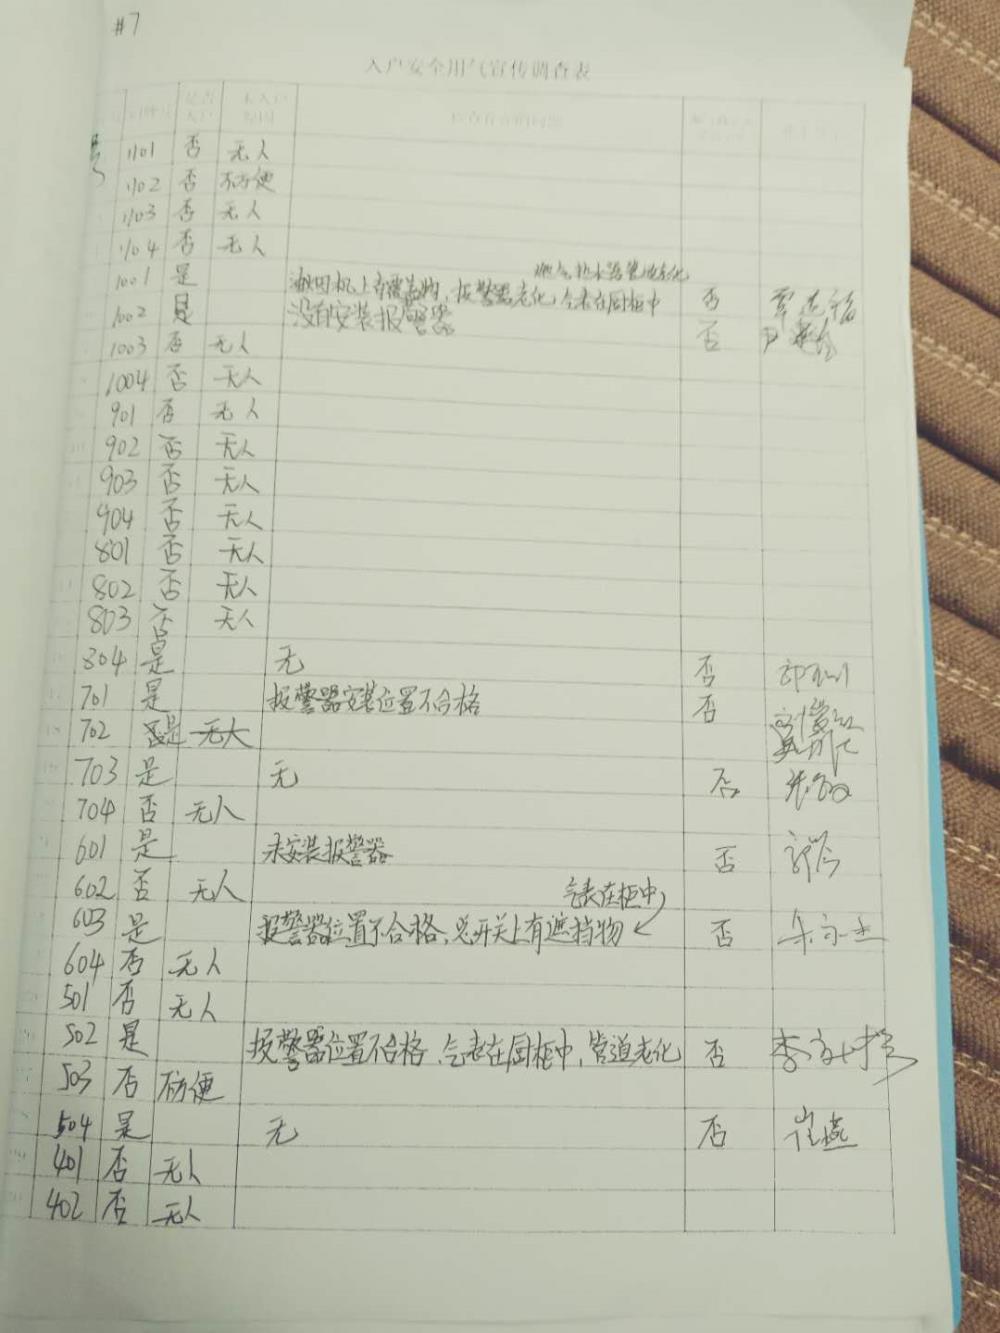 #7
入户安全用气宣传调查表
门牌号 是否入户 未入户原因 检查存在的问题
1101 否 无人
1102 否 不方便
1103 否 无人
1104 否 无人
燃气热水器管道老化
1001 是 报警器老化,气表在厨柜中 否
1002 是 没有安装报警器 否
1003 否 无人
1004 否 无人
901 否 无人
902 否 无人
903 否 无人
904 否 无人
801 否 无人
802 否 无人
803 否 无人
804 是 无 否
701 是 报警器安装位置不合格 否
702 是 无人
703 是 无 否
704 否 无人
601 是 未安装报警器 否
602 否 无人
气表在柜中
603 是 报警器位置不合格、总开关上有遮挡物 否
604 否 无人
501 否 无人
502 是 报警器位置不合格、气表在厨柜中,管道老化 否
503 否 不方便
504 是 无 否 崔燕
401 否 无人
402 否 无人